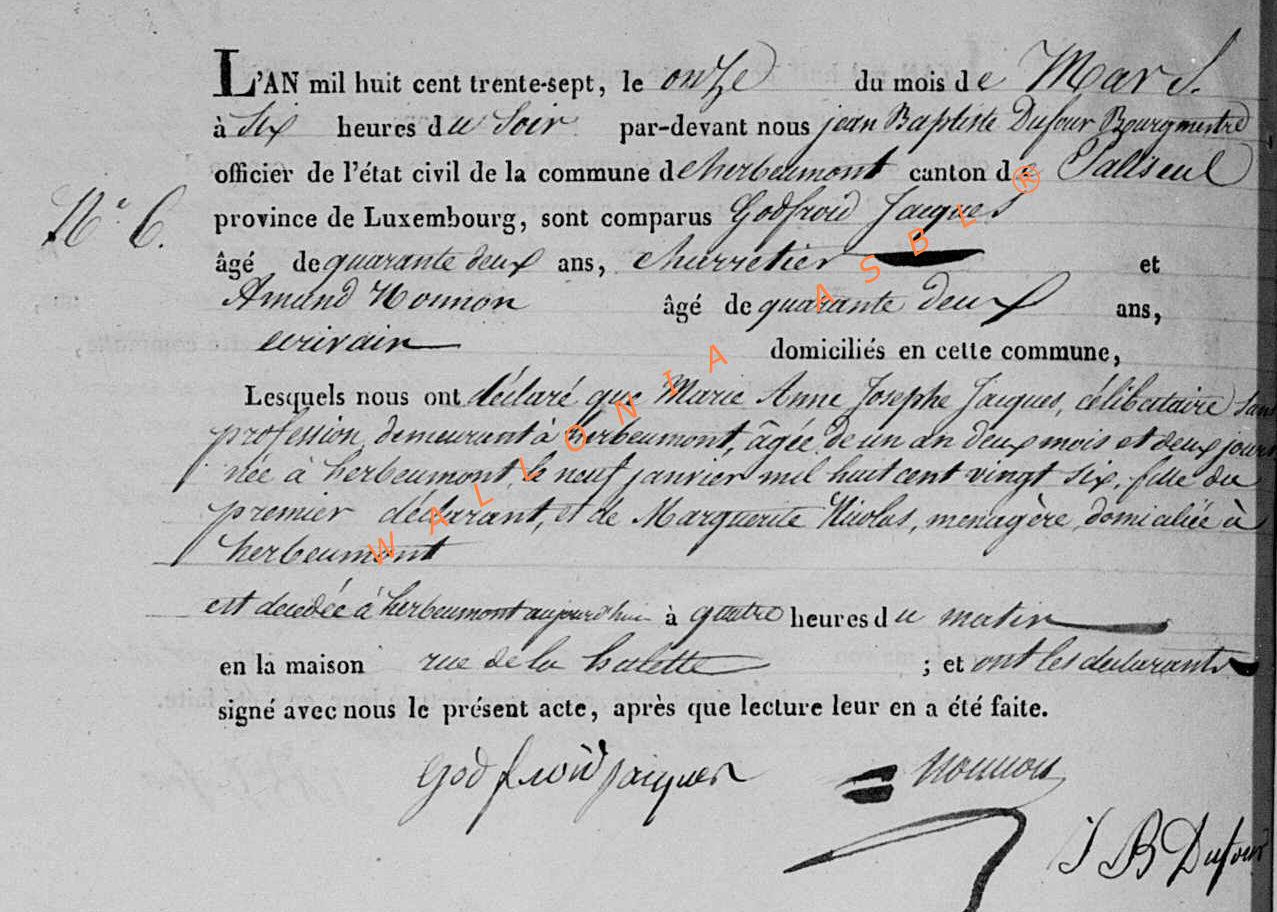 L'AN mil huit cent trente-sept, le onze du mois de Mars.
à Six heures du Soir par-devant nous jean Baptiste Dufour Bourgmestre
officier de l'état civil de la commune de herbeumont canton de Paliseul
N° 6.
province de Luxembourg, sont comparus Godfroid Jacques
âgé de quarante deux ans, charretier et
Amand Nonnon âgé de quarante deux ans,
ecrivain domiciliés en cette commune,
Lesquels nous ont déclaré que Marie Anne Josephe Jacques, célibataire sans
profession, demeurant à herbeumont, âgée de un an deux mois et deux jours
née à herbeumont, le neuf janvier mil huit cent vingt six, fille du
premier déclarant, et de Marguerite Nicolas, menagère, domiciliée à
herbeumont
est decedée à herbeumont aujourd'hui à quatre heures du matin
en la maison rue de la halette ; et ont les declarants
signé avec nous le présent acte, après que lecture leur en a été faite.
Godfroid jacques Nonnon
J B Dufour
WALLONIA ASBL ®